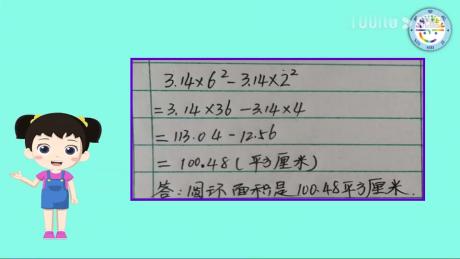 3.14×6²-3.14×2²
=3.14×36-3.14×4
=113.04-12.56
=100.48(平方厘米)
答:圆环面积是100.48平方厘米.